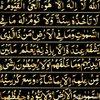 اللَّهُ لَا إِلَٰهَ إِلَّا هُوَ الْحَيُّ الْقَيُّومُ
لَا تَأْخُذُهُ سِنَةٌ وَلَا نَوْمٌ لَهُ مَا فِي
السَّمَٰوَٰتِ وَمَا فِي الْأَرْضِ مَنْ ذَا الَّذِي
يَشْفَعُ عِنْدَهُ إِلَّا بِإِذْنِهِ يَعْلَمُ مَا بَيْنَ
أَيْدِيهِمْ وَمَا خَلْفَهُمْ وَلَا يُحِيطُونَ
بِشَيْءٍ مِنْ عِلْمِهِ إِلَّا بِمَا شَاءَ وَسِعَ